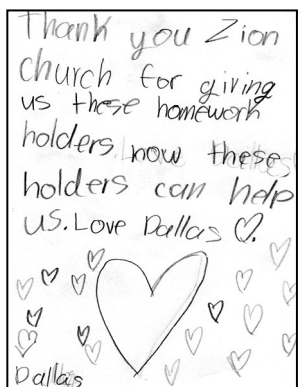 Thank you Zion
church for giving
us these homework
holders now these
holders can help
us. Love Dallas ♡.
Dallas